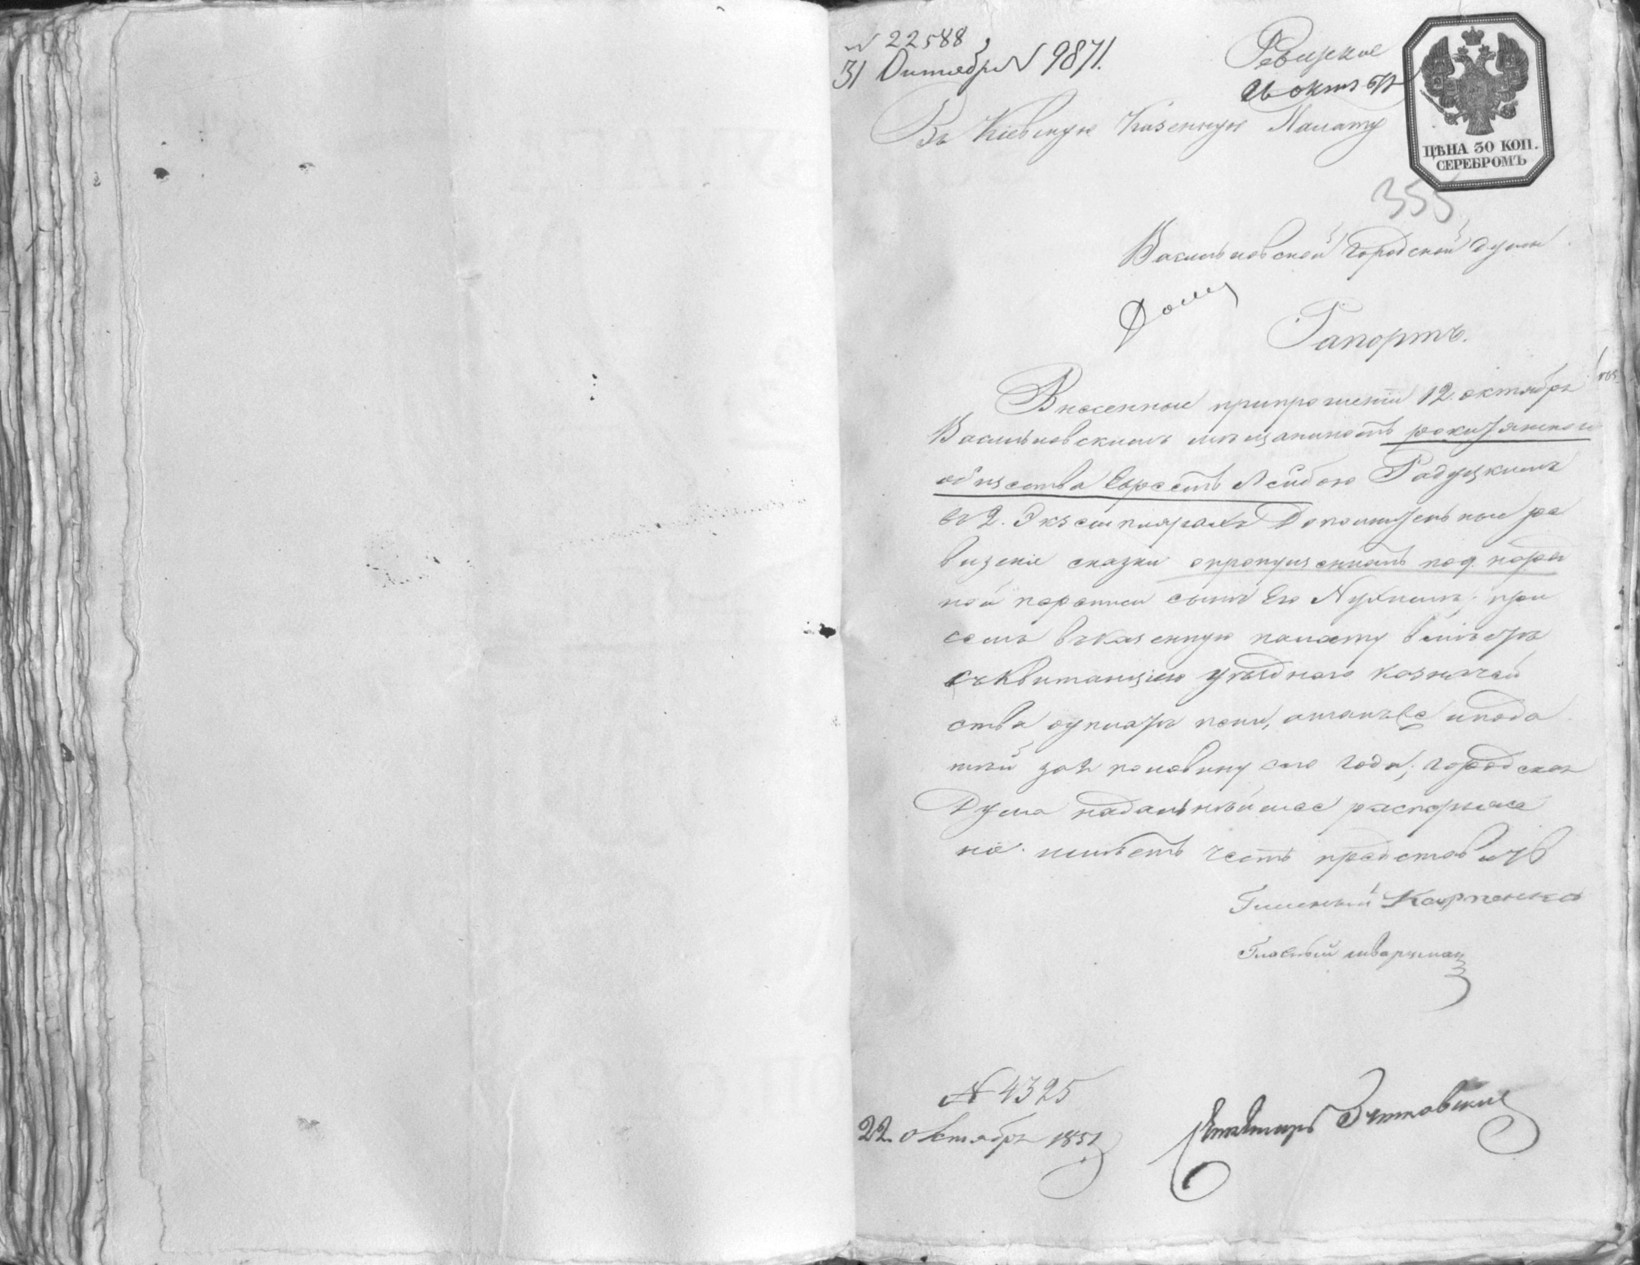 № 22588
31 Октября № 9871.
Ревизское
26 окт
ЦѢНА 30 КОП.
СЕРЕБРОМЪ
Въ Кіевскую Казенную Палату
355
Васильковской Городской думы
Рапортъ.
Внесенные припрошеніи 12 октября
Васильковскимъ мѣщаниномъ рокитянского
общества Евреемъ Лейбою Радуцкимъ
въ 2. Экземплярахъ Дополнительные ре
визскіе сказки опропущенномъ под народ
ной переписи сынѣ Его Нухимѣ; при
семъ въказенную палату вмѣстѣ
съквитанціею уѣзднаго казначей
ства оуплатѣ пени, атакже иподо
тей за 2 половину сего года; городская
Дума надальнѣйшее распоряже
ніе имѣетъ честь представить
Гласный Карпенко
Гласный шварцман
№ 4325
22. октября 1851